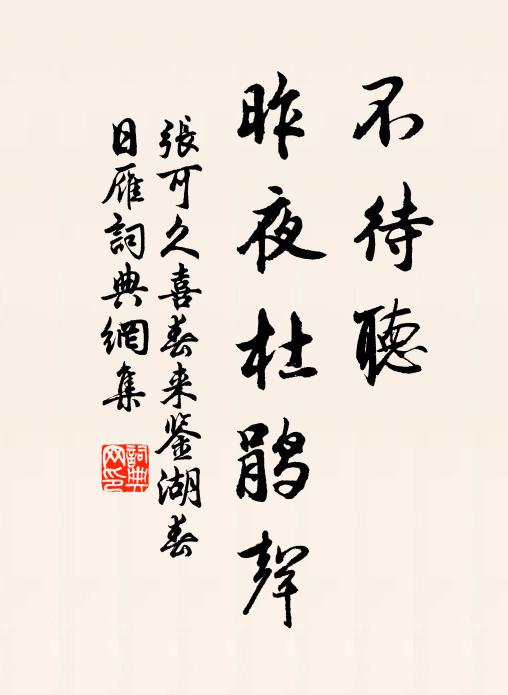 不待聽
昨夜杜鵑聲
張可久喜春来鉴湖春
日雁詞典網集
詞典
网印